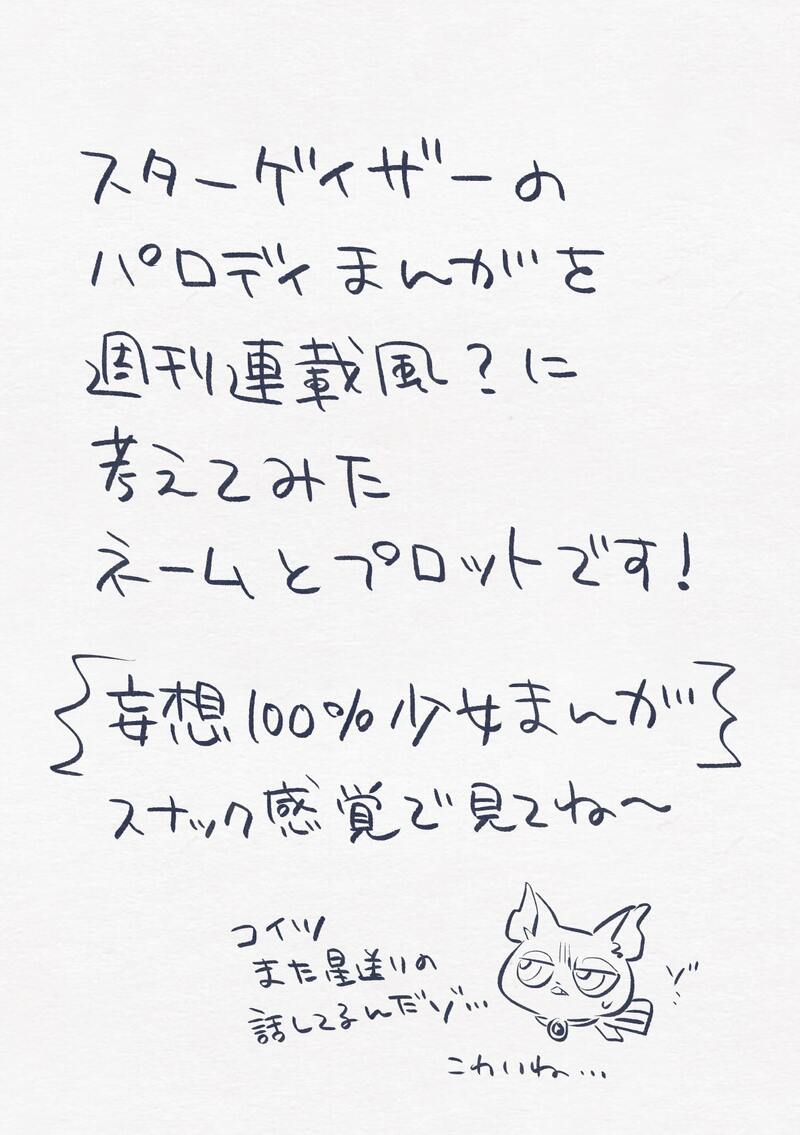 スターゲイザーの
パロディまんがを
週刊連載風？に
考えてみた
ネームとプロットです！
妄想100%少女まんが
スナック感覚で見てね〜
コイツ
また星送りの
話してるんだゾ…
ゾ…
こわいね…